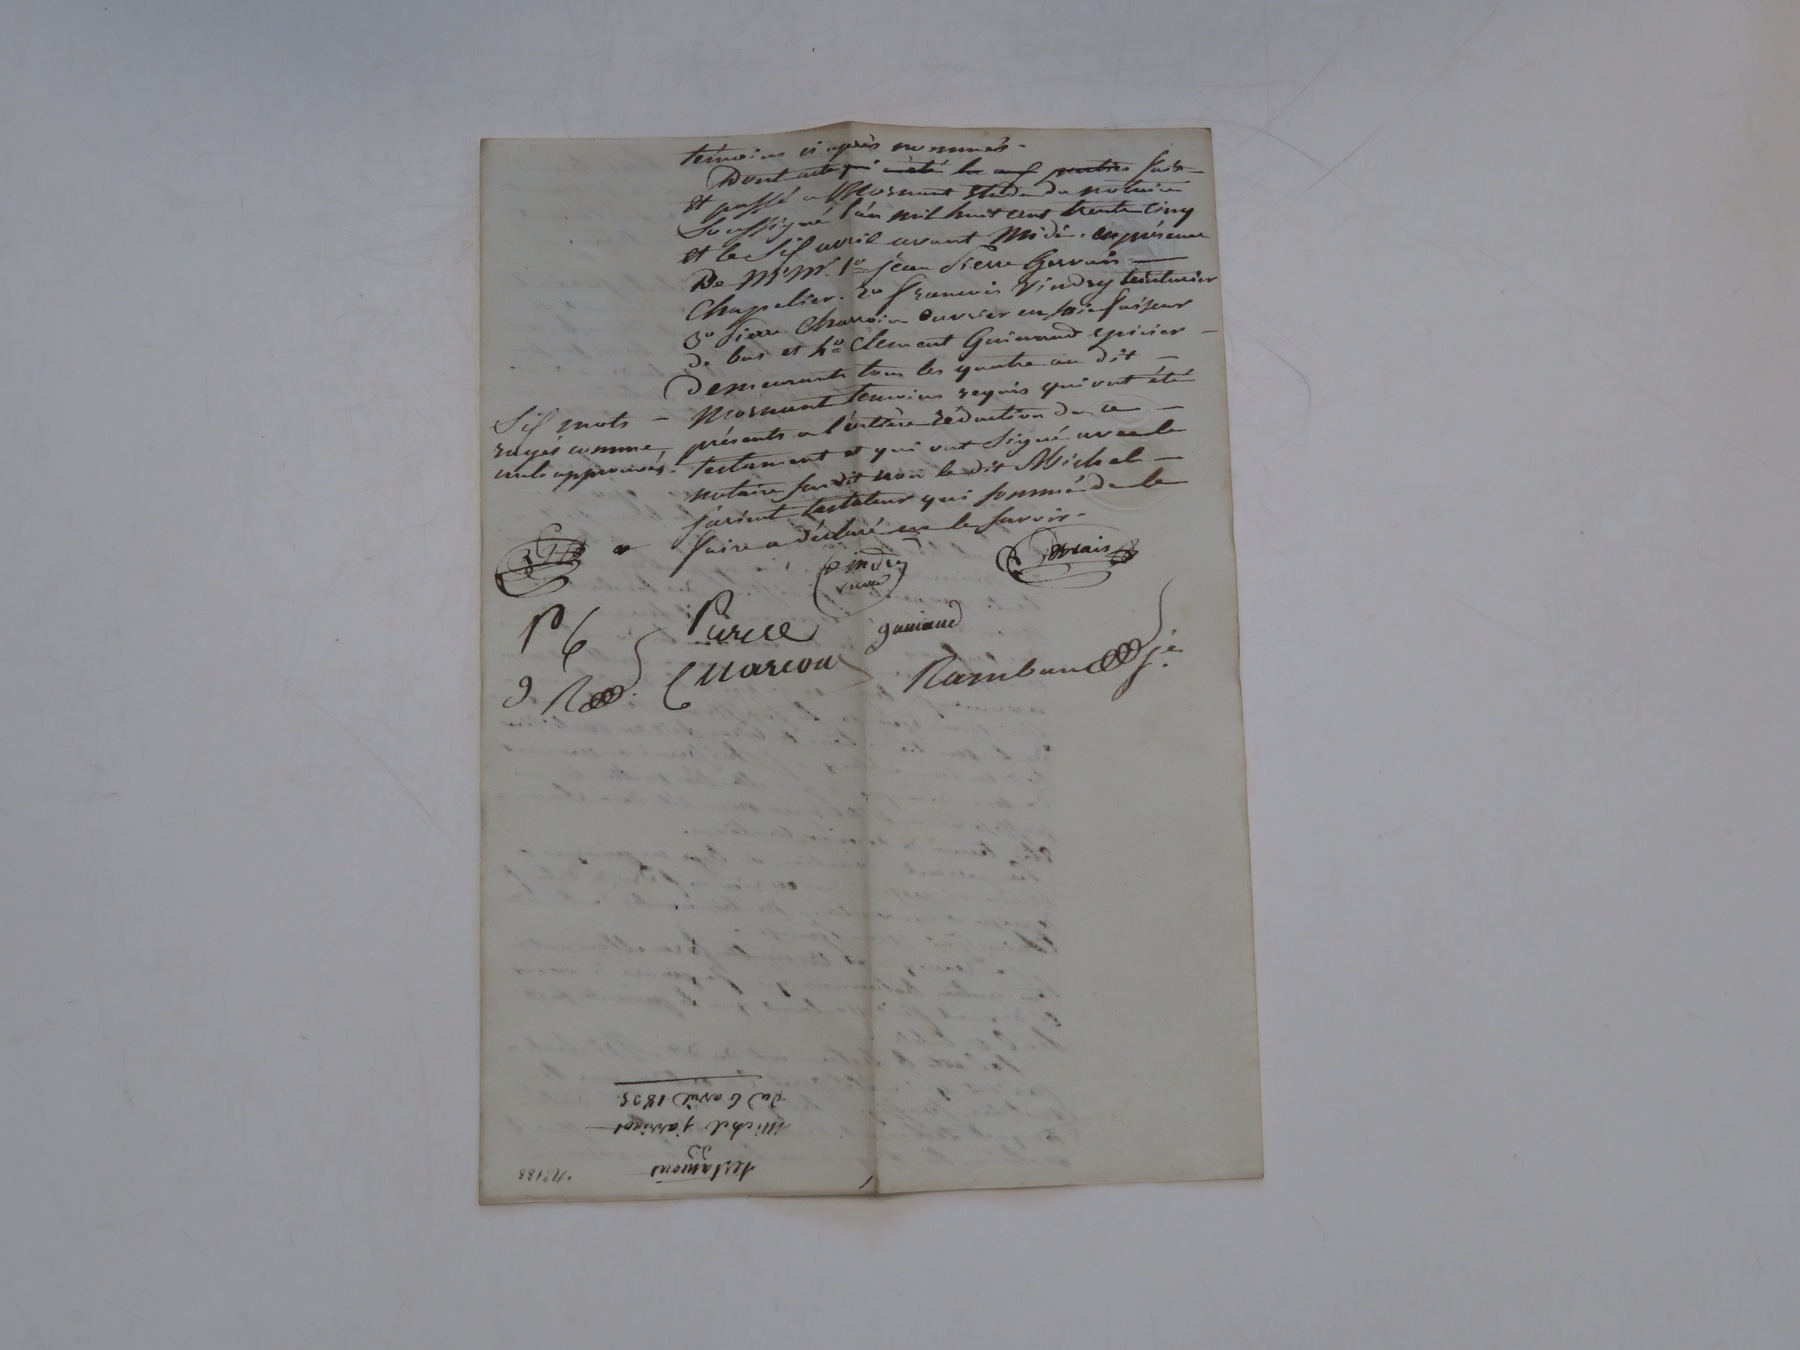 témoins ci après nommés -
Dont acte qui a été lu aux parties fait -
et passé a Mornant Etude du notaire
Soussigné l'an mil huit cent trente cinq
et le Six avril avant Midi. en présence
De MrMr. 1o jean Pierre Gervais —
Chapelier. 2o francois Vindry teinturier
3o Pierre Charvin ouvrier en soie faiseur
de bas et 4o Clement Guinand epicier -
Demeurants tous les quatre au dit -
Mornant temoins requis qui ont été
présents a l'entière rédaction de ce -
testament et qui ont Signé avec le
notaire Susdit non le dit Michel -
Jarient testateur qui Sommé de le
faire a déclaré ne le Savoir -
Six mots -
rayés comme
nuls approuvés -
Vindry
Gervais
P C
Pierre
guinand
g R
Charvin
Rambaud je
testament
de
Michel jarricot
Du 6 avril 1835
No. 188